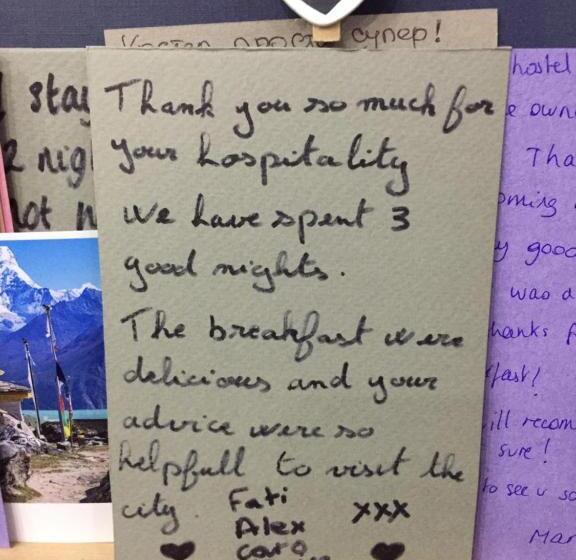 Хостел просто супер!
Thank you so much for
your hospitality
We have spent 3
good nights.
The breakfast were
delicious and your
advice were so
helpfull to visit the
city.
Fati
Alex
xxx
stay
2 nig
not
hostel
e own
Tha
oming
y good
was a
hanks f
fast!
ill recom
sure!
to see u so
Mar